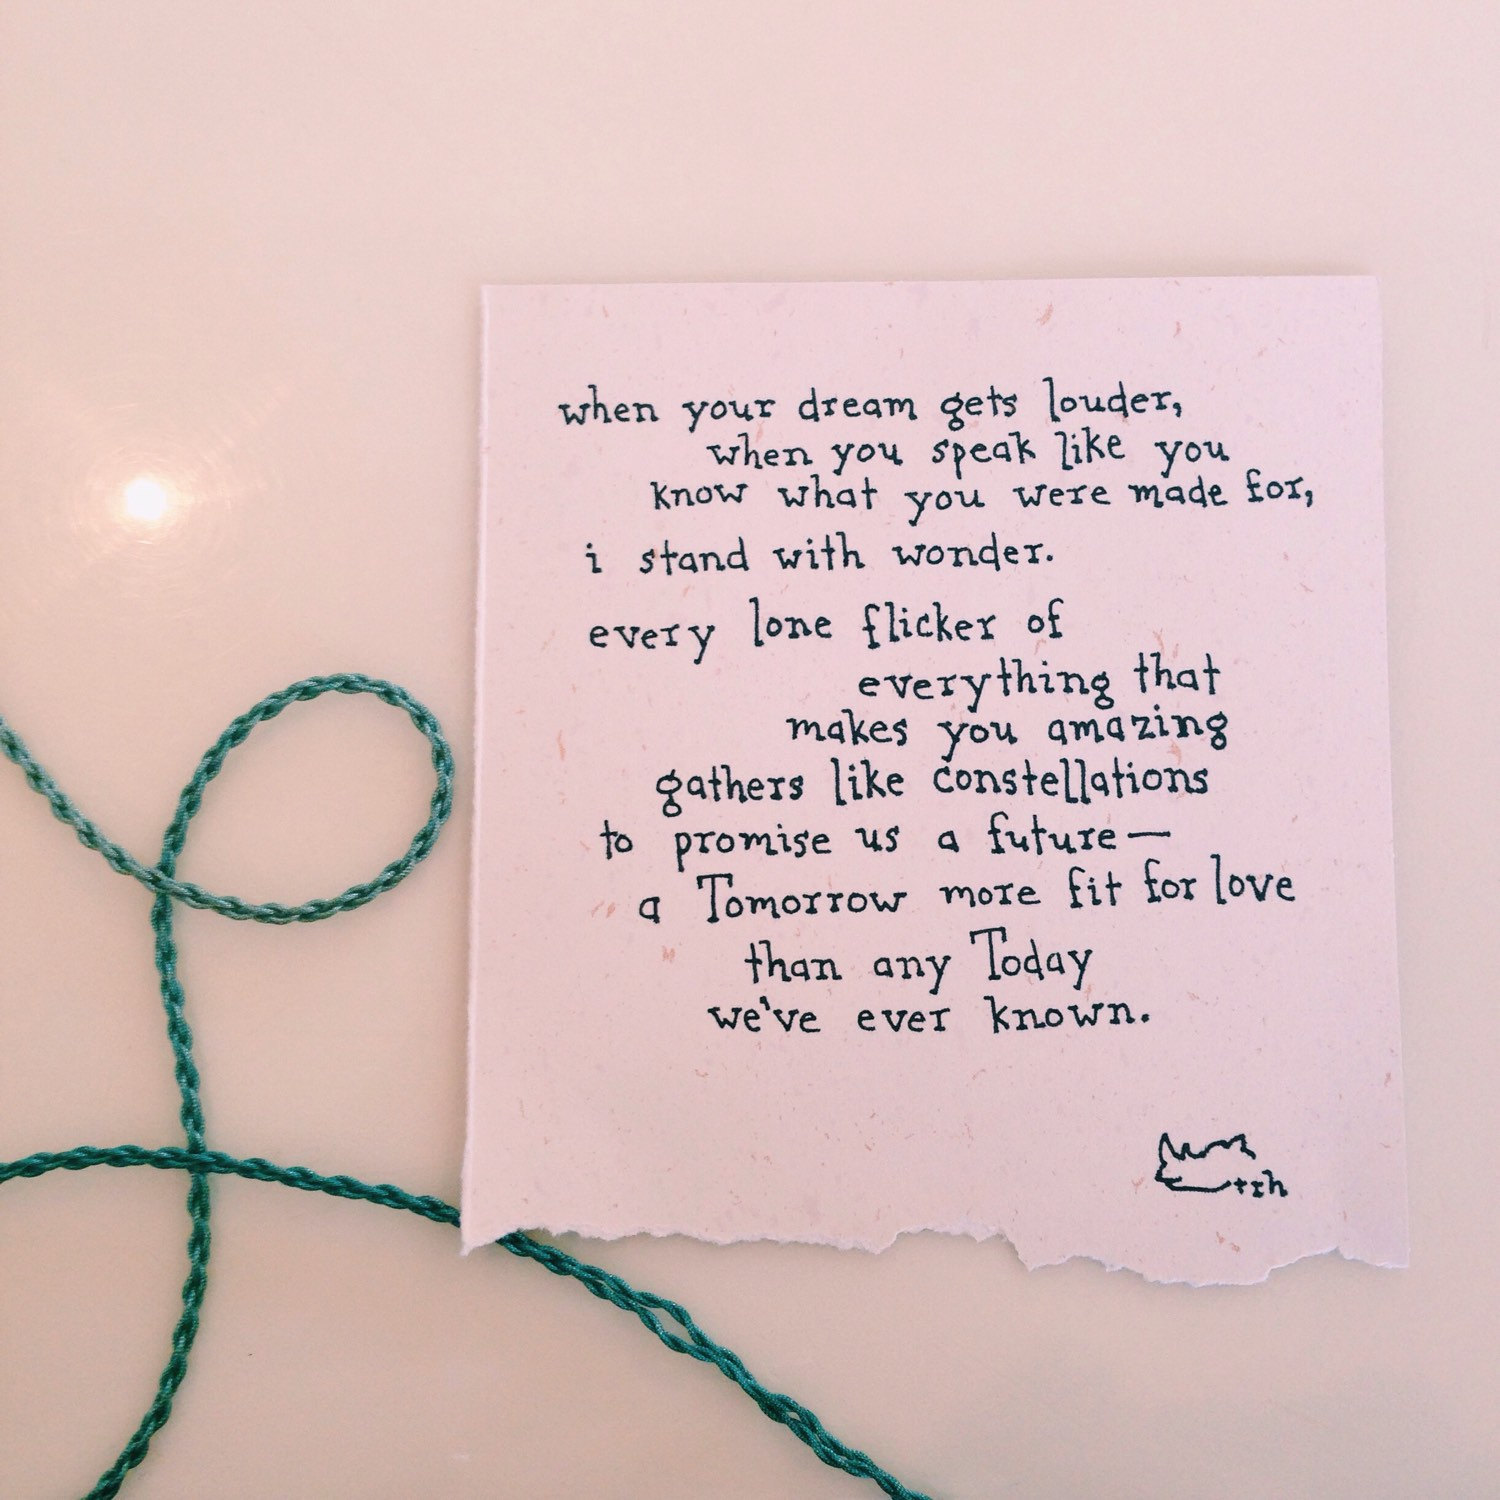 when your dream gets louder,
when you speak like you
know what you were made for,
i stand with wonder.
every lone flicker of
everything that
makes you amazing
gathers like constellations
to promise us a future—
a Tomorrow more fit for love
than any Today
we've ever known.
trh